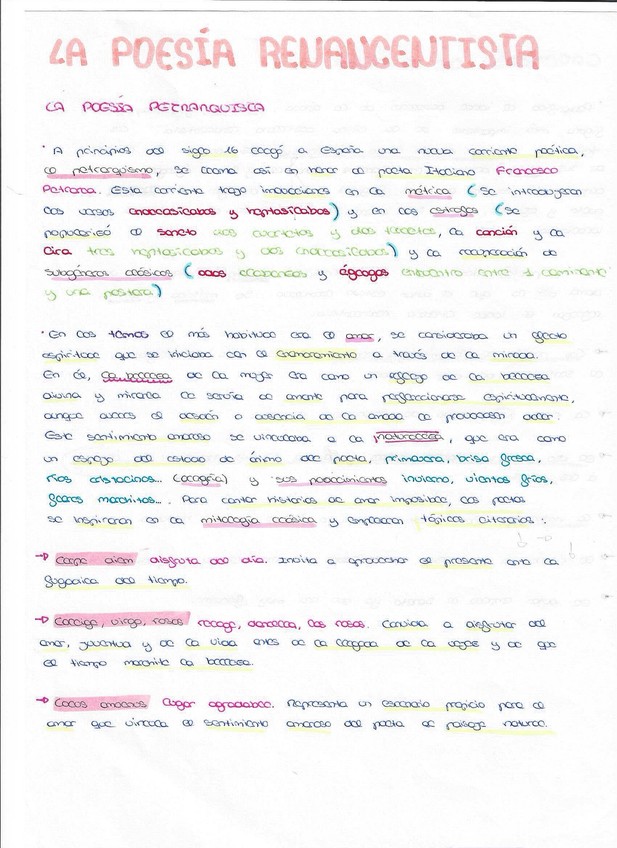 LA POESÍA RENANCENTISTA
LA POESÍA PETRARQUISCA
· A principios del siglo 16 llegó a España una nueva corriente poética,
el petrarquismo, se llama así en honor al poeta Italiano Francesco
Petrarca. Esta corriente trajo innovaciones en la métrica (Se introdujeron
los versos endecasílabos y heptasílabos) y en las estrofas (Se
popularizó el soneto dos cuartetos y dos tercetos, la canción y la
lira tres heptasílabos y dos endecasílabos) y la recuperación de
subgéneros clásicos (odas alabanzas y églogas encuentro entre 1 caminante
y una pastora)
· En los temas el más habitual era el amor, se consideraba un afecto
espiritual que se iniciaba con el enamoramiento a través de la mirada.
En él, la belleza de la mujer era como un reflejo de la belleza
divina y mirarla le servía al amante para perfeccionarse espiritualmente,
aunque a veces el desdén o ausencia de la amada le provocasen dolor.
Este sentimiento amoroso se vinculaba a la naturaleza, que era como
un espejo del estado de ánimo del poeta, primavera, brisa fresca,
ríos cristalinos... (alegría) y sus padecimientos invierno, vientos fríos,
flores marchitas... Para contar historias de amor imposible, los poetas
se inspiraron en la mitología clásica y emplearon tópicos literarios:
→ Carpe diem disfruta del día. Invita a aprovechar el presente ante la
fugacidad del tiempo.
→ Collige, virgo, rosas recoge, doncella, las rosas. Convida a disfrutar del
amor, juventud y de la vida antes de la llegada de la vejez y de que
el tiempo marchite la belleza.
→ Locus amoenus lugar agradable. Representa un escenario propicio para el
amor que vincula el sentimiento amoroso del poeta al paisaje natural.